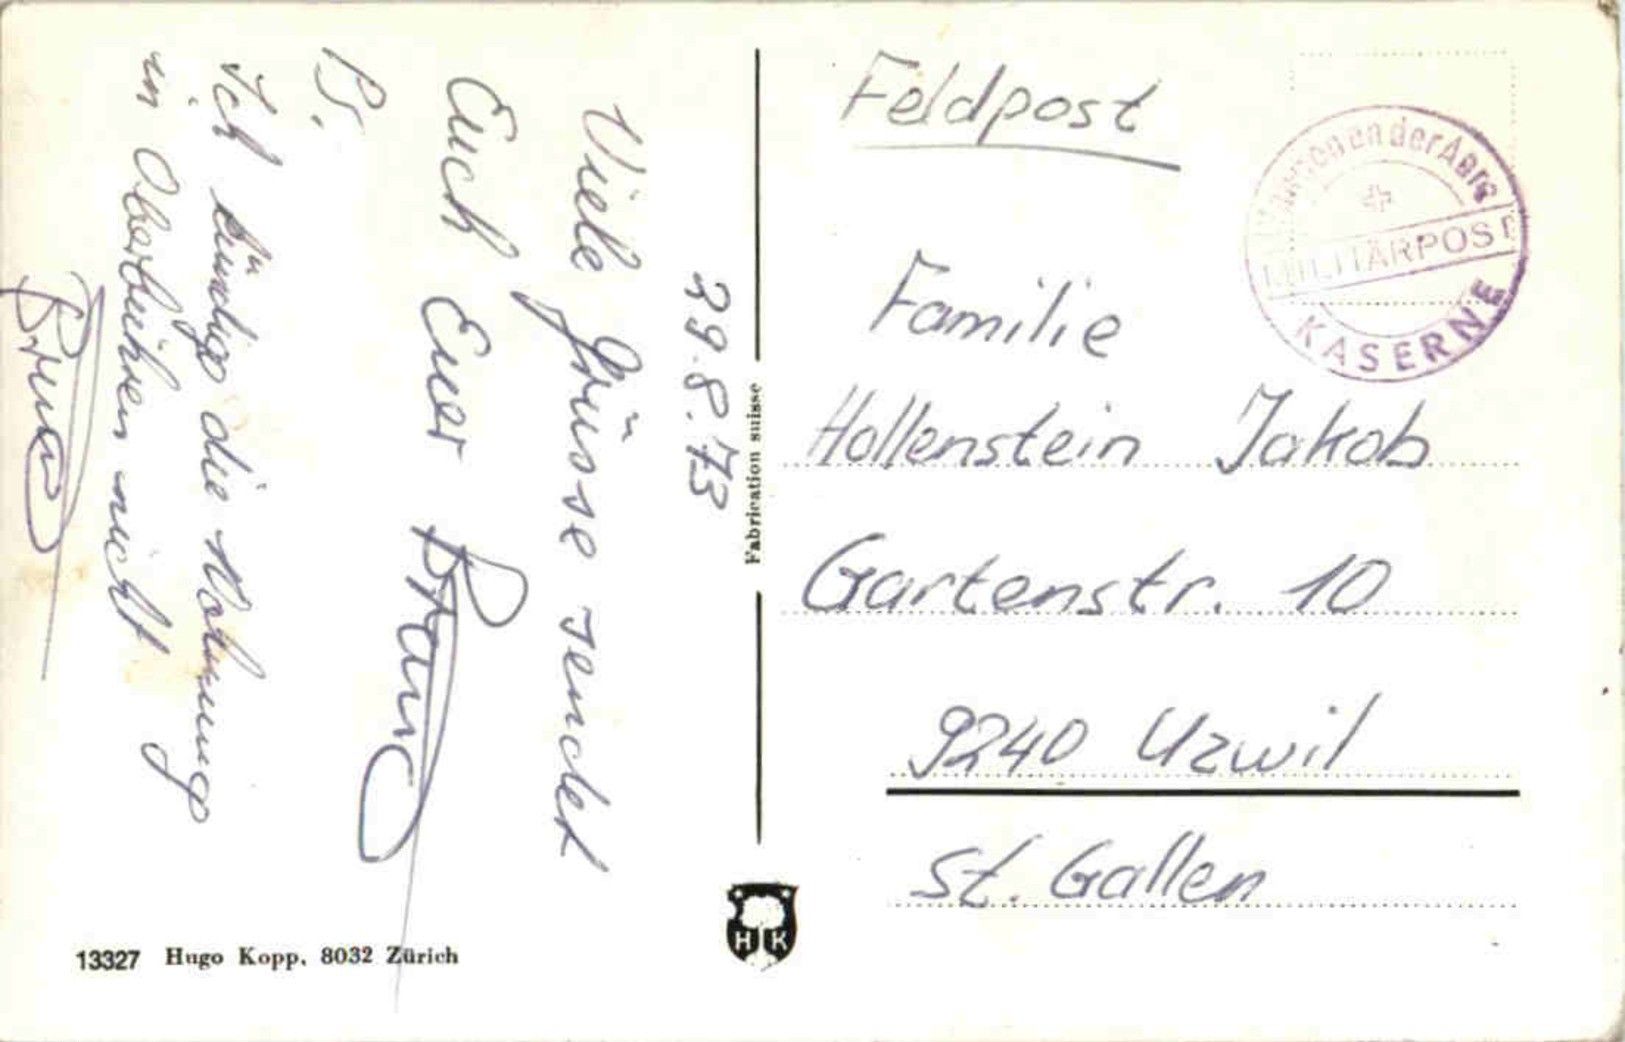 29.8.73
Viele Grüsse sendet
Euch Euer Bruno
PS.
Ich kündige die Wohnung
in Oberbüren nicht
Bruno
13327 Hugo Kopp, 8032 Zürich
Fabrication suisse
H K
Feldpost
Familie
Hollenstein Jakob
Gartenstr. 10
9240 Uzwil
St. Gallen
Wangen an der Aare
MILITÄRPOST
KASERNE